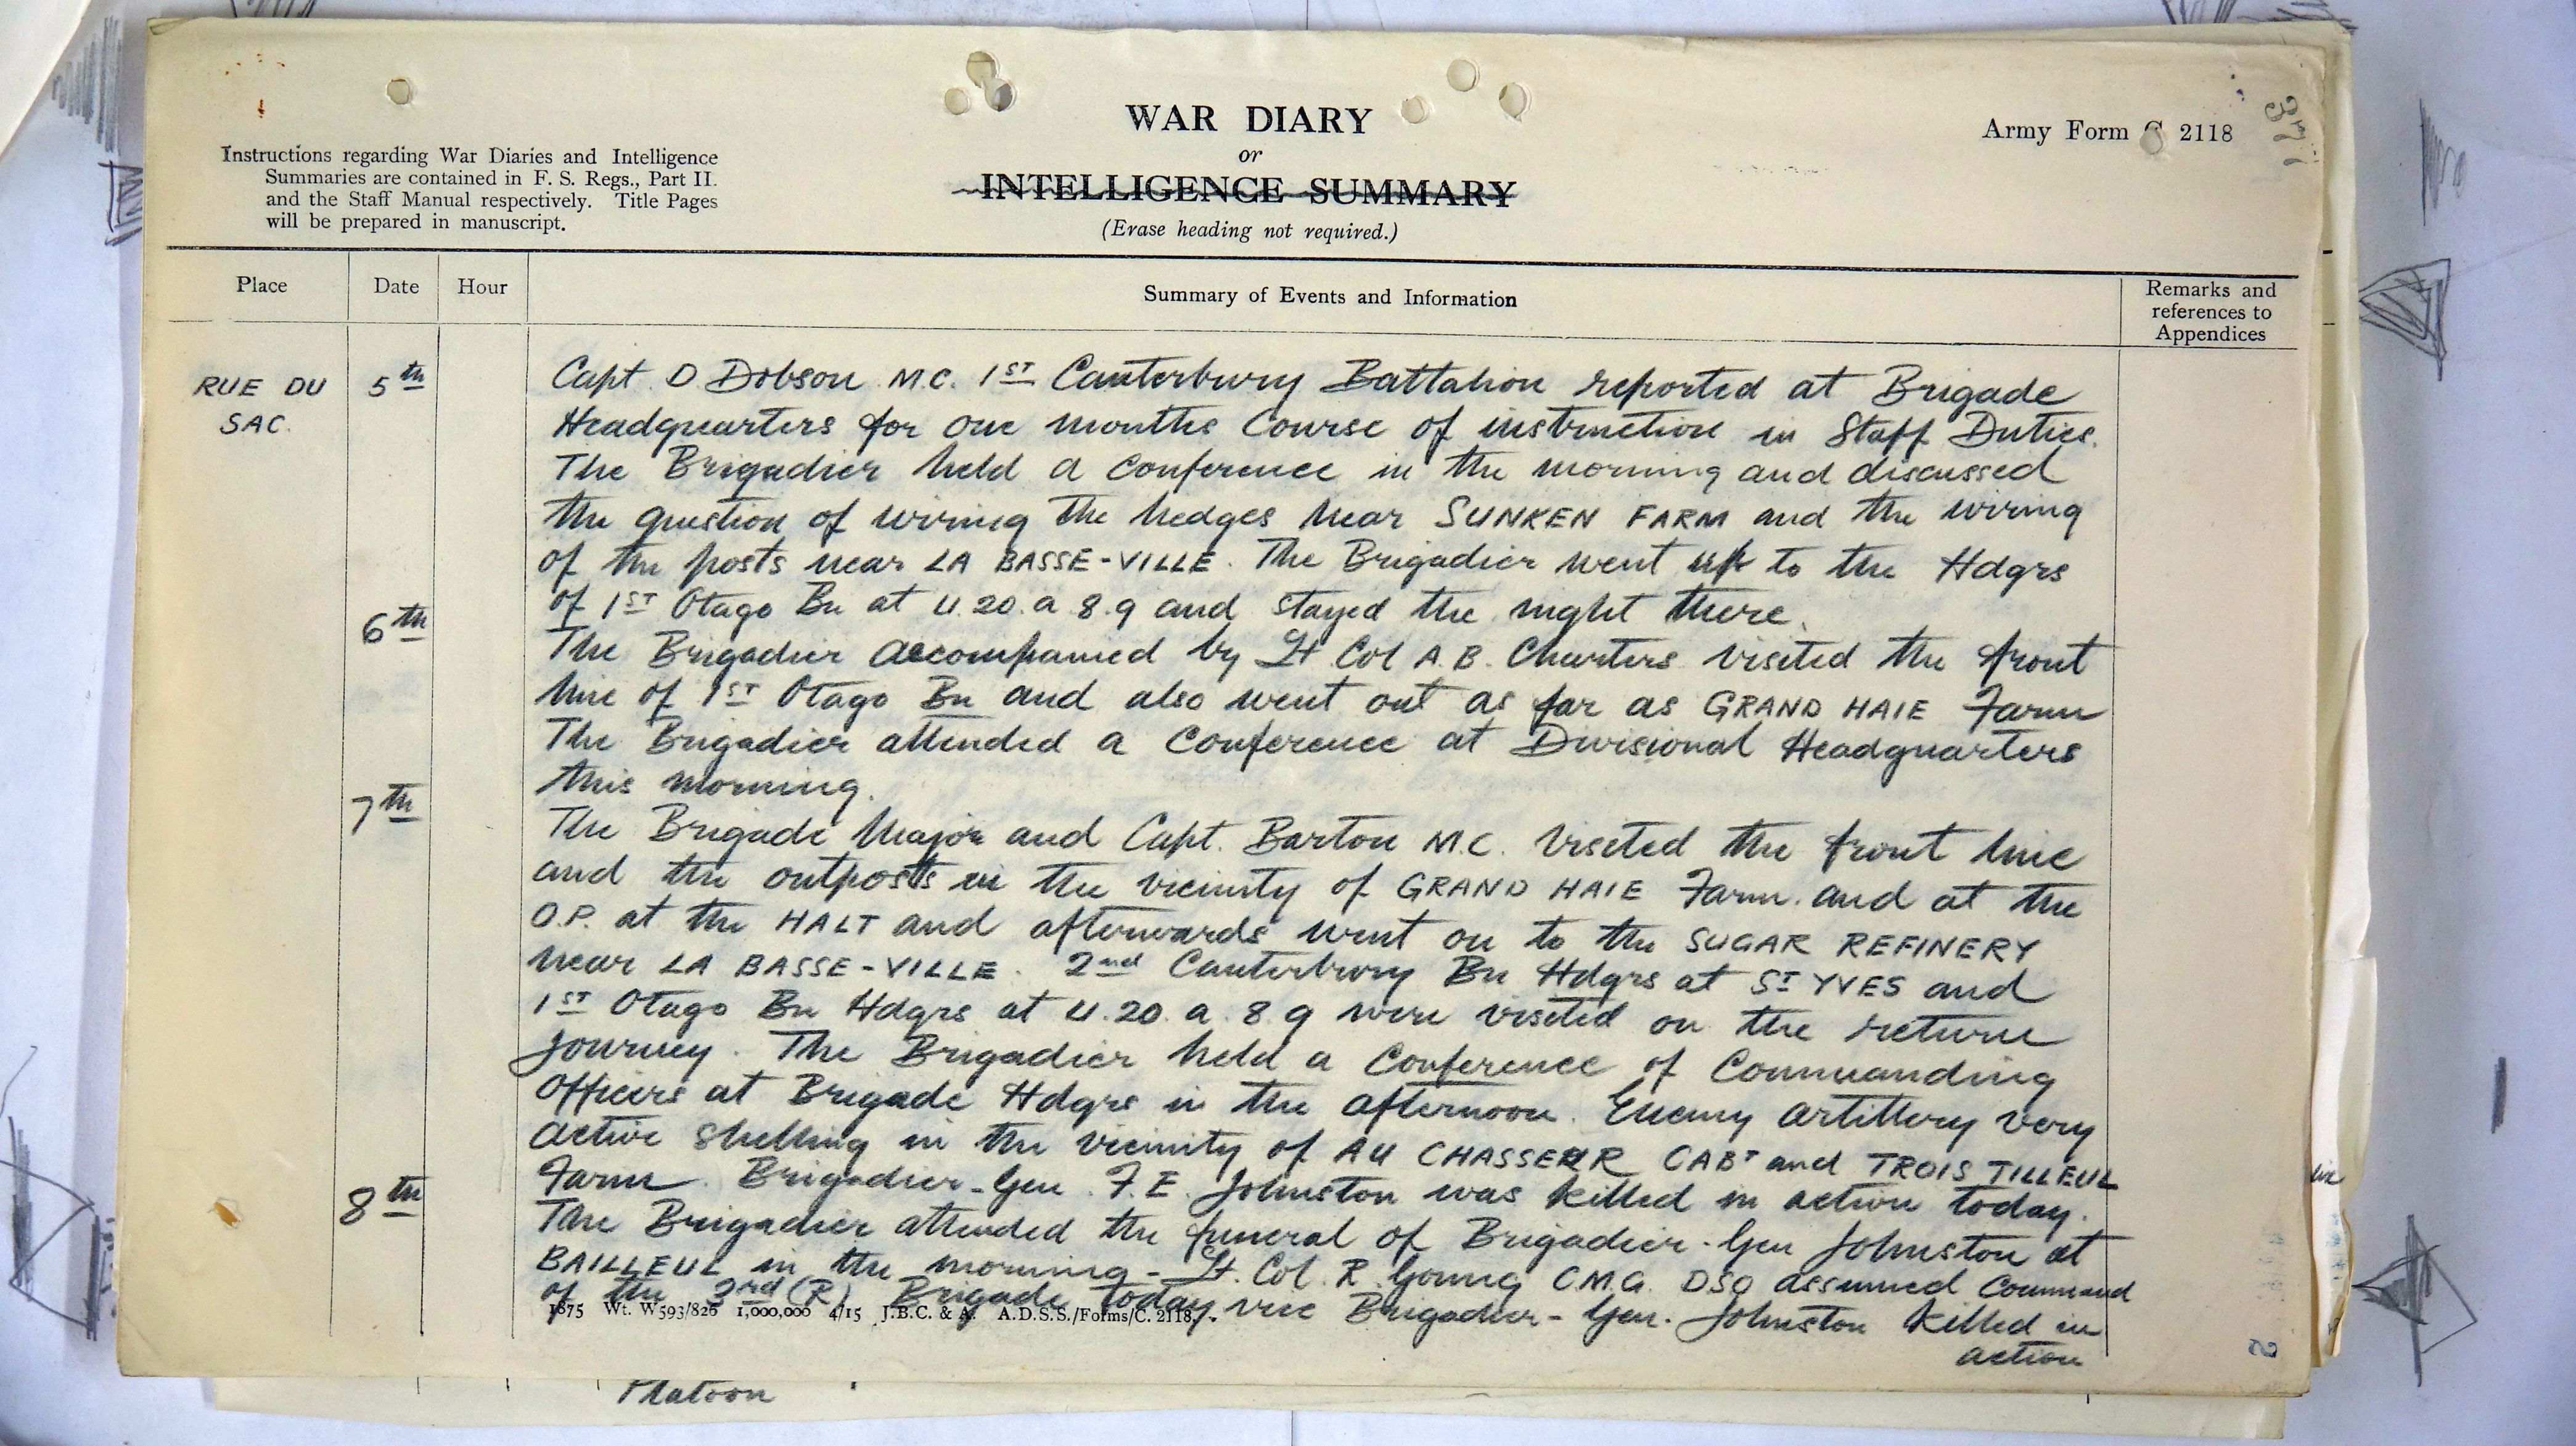 WAR DIARY
or
INTELLIGENCE SUMMARY
(Erase heading not required.)
Army Form C 2118
Instructions regarding War Diaries and Intelligence
Summaries are contained in F. S. Regs., Part II.
and the Staff Manual respectively. Title Pages
will be prepared in manuscript.
Place Date Hour Summary of Events and Information Remarks and
references to
Appendices
RUE DU
SAC.
5th
Capt. D Dobson M.C. 1ST Canterbury Battalion reported at Brigade
Headquarters for one months Course of instruction in Staff Duties.
The Brigadier held a conference in the morning and discussed
the question of wiring the hedges near SUNKEN FARM and the wiring
of the posts near LA BASSE-VILLE. The Brigadier went up to the Hdqrs
of 1ST Otago Bn at U.20.a.8.9 and stayed the night there.
6th
The Brigadier accompanied by Lt Col A.B. Charters visited the front
line of 1ST Otago Bn and also went out as far as GRAND HAIE Farm
The Brigadier attended a Conference at Divisional Headquarters
this morning.
7th
The Brigade Major and Capt. Barton M.C. visited the front line
and the outposts in the vicinity of GRAND HAIE Farm. and at the
O.P. at the HALT and afterwards went on to the SUGAR REFINERY
near LA BASSE-VILLE. 2nd Canterbury Bn Hdqrs at ST YVES and
1ST Otago Bn Hdqrs at U.20.a.8.9 were visited on the return
journey. The Brigadier held a Conference of Commanding
Officers at Brigade Hdqrs in the afternoon. Enemy artillery very
active shelling in the vicinity of AU CHASSEUR CABT and TROIS TILLEUL
Farm. Brigadier-Gen. F.E. Johnston was killed in action today.
8th
The Brigadier attended the funeral of Brigadier-Gen Johnston at
BAILLEUL in the morning - Lt. Col. R. Young C.M.G. DSO assumed Command
of the 3rd (R) Brigade today vice Brigadier-Gen. Johnston killed in
action
1875 Wt. W593/826 1,000,000 4/15 J.B.C. & A. A.D.S.S./Forms/C. 2118.
Platoon